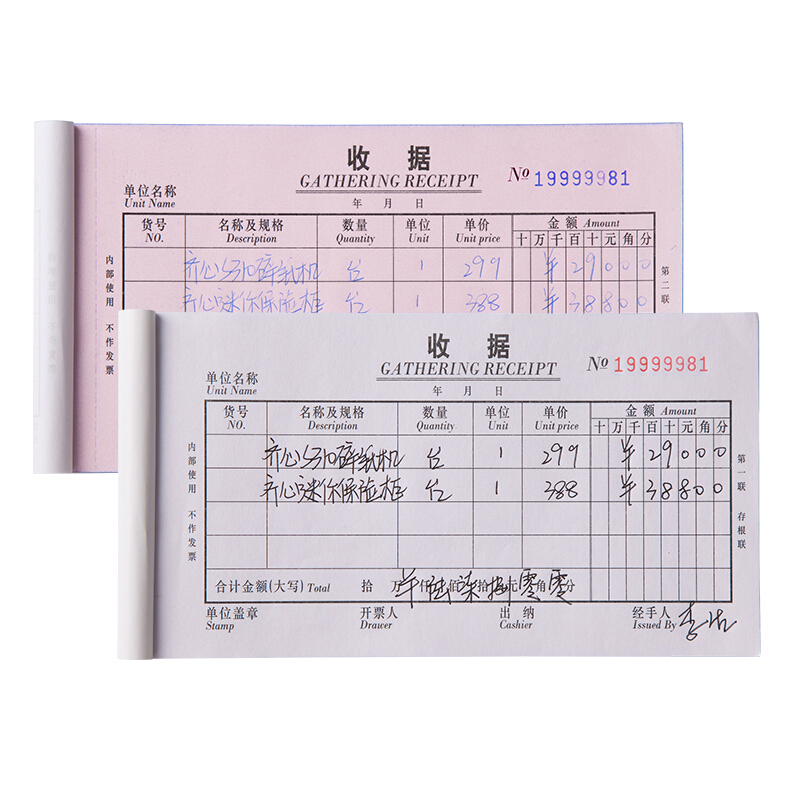 收 据
GATHERING RECEIPT
№ 19999981
单位名称
Unit Name
年 月 日
货号 名称及规格 数量 单位 单价 金 额 Amount
NO. Description Quantity Unit Unit price 十 万 千 百 十 元 角 分
齐心 碎纸机 台 1 299 ¥ 2 9 0 0 0
齐心迷你保险柜 台 1 388 ¥ 3 8 8 0 0
内部使用 不作发票
第二联
收 据
GATHERING RECEIPT
№ 19999981
单位名称
Unit Name
年 月 日
货号 名称及规格 数量 单位 单价 金 额 Amount
NO. Description Quantity Unit Unit price 十 万 千 百 十 元 角 分
齐心 碎纸机 台 1 299 ¥ 2 9 0 0 0
齐心迷你保险柜 台 1 388 ¥ 3 8 8 0 0
内部使用 不作发票
第一联 存根联
合计金额(大写) Total 拾 万 仟 佰 拾 元 角 分
羊 陆 柒 捌 零 零
单位盖章 开票人 出 纳 经手人
Stamp Drawer Cashier Issued By 李